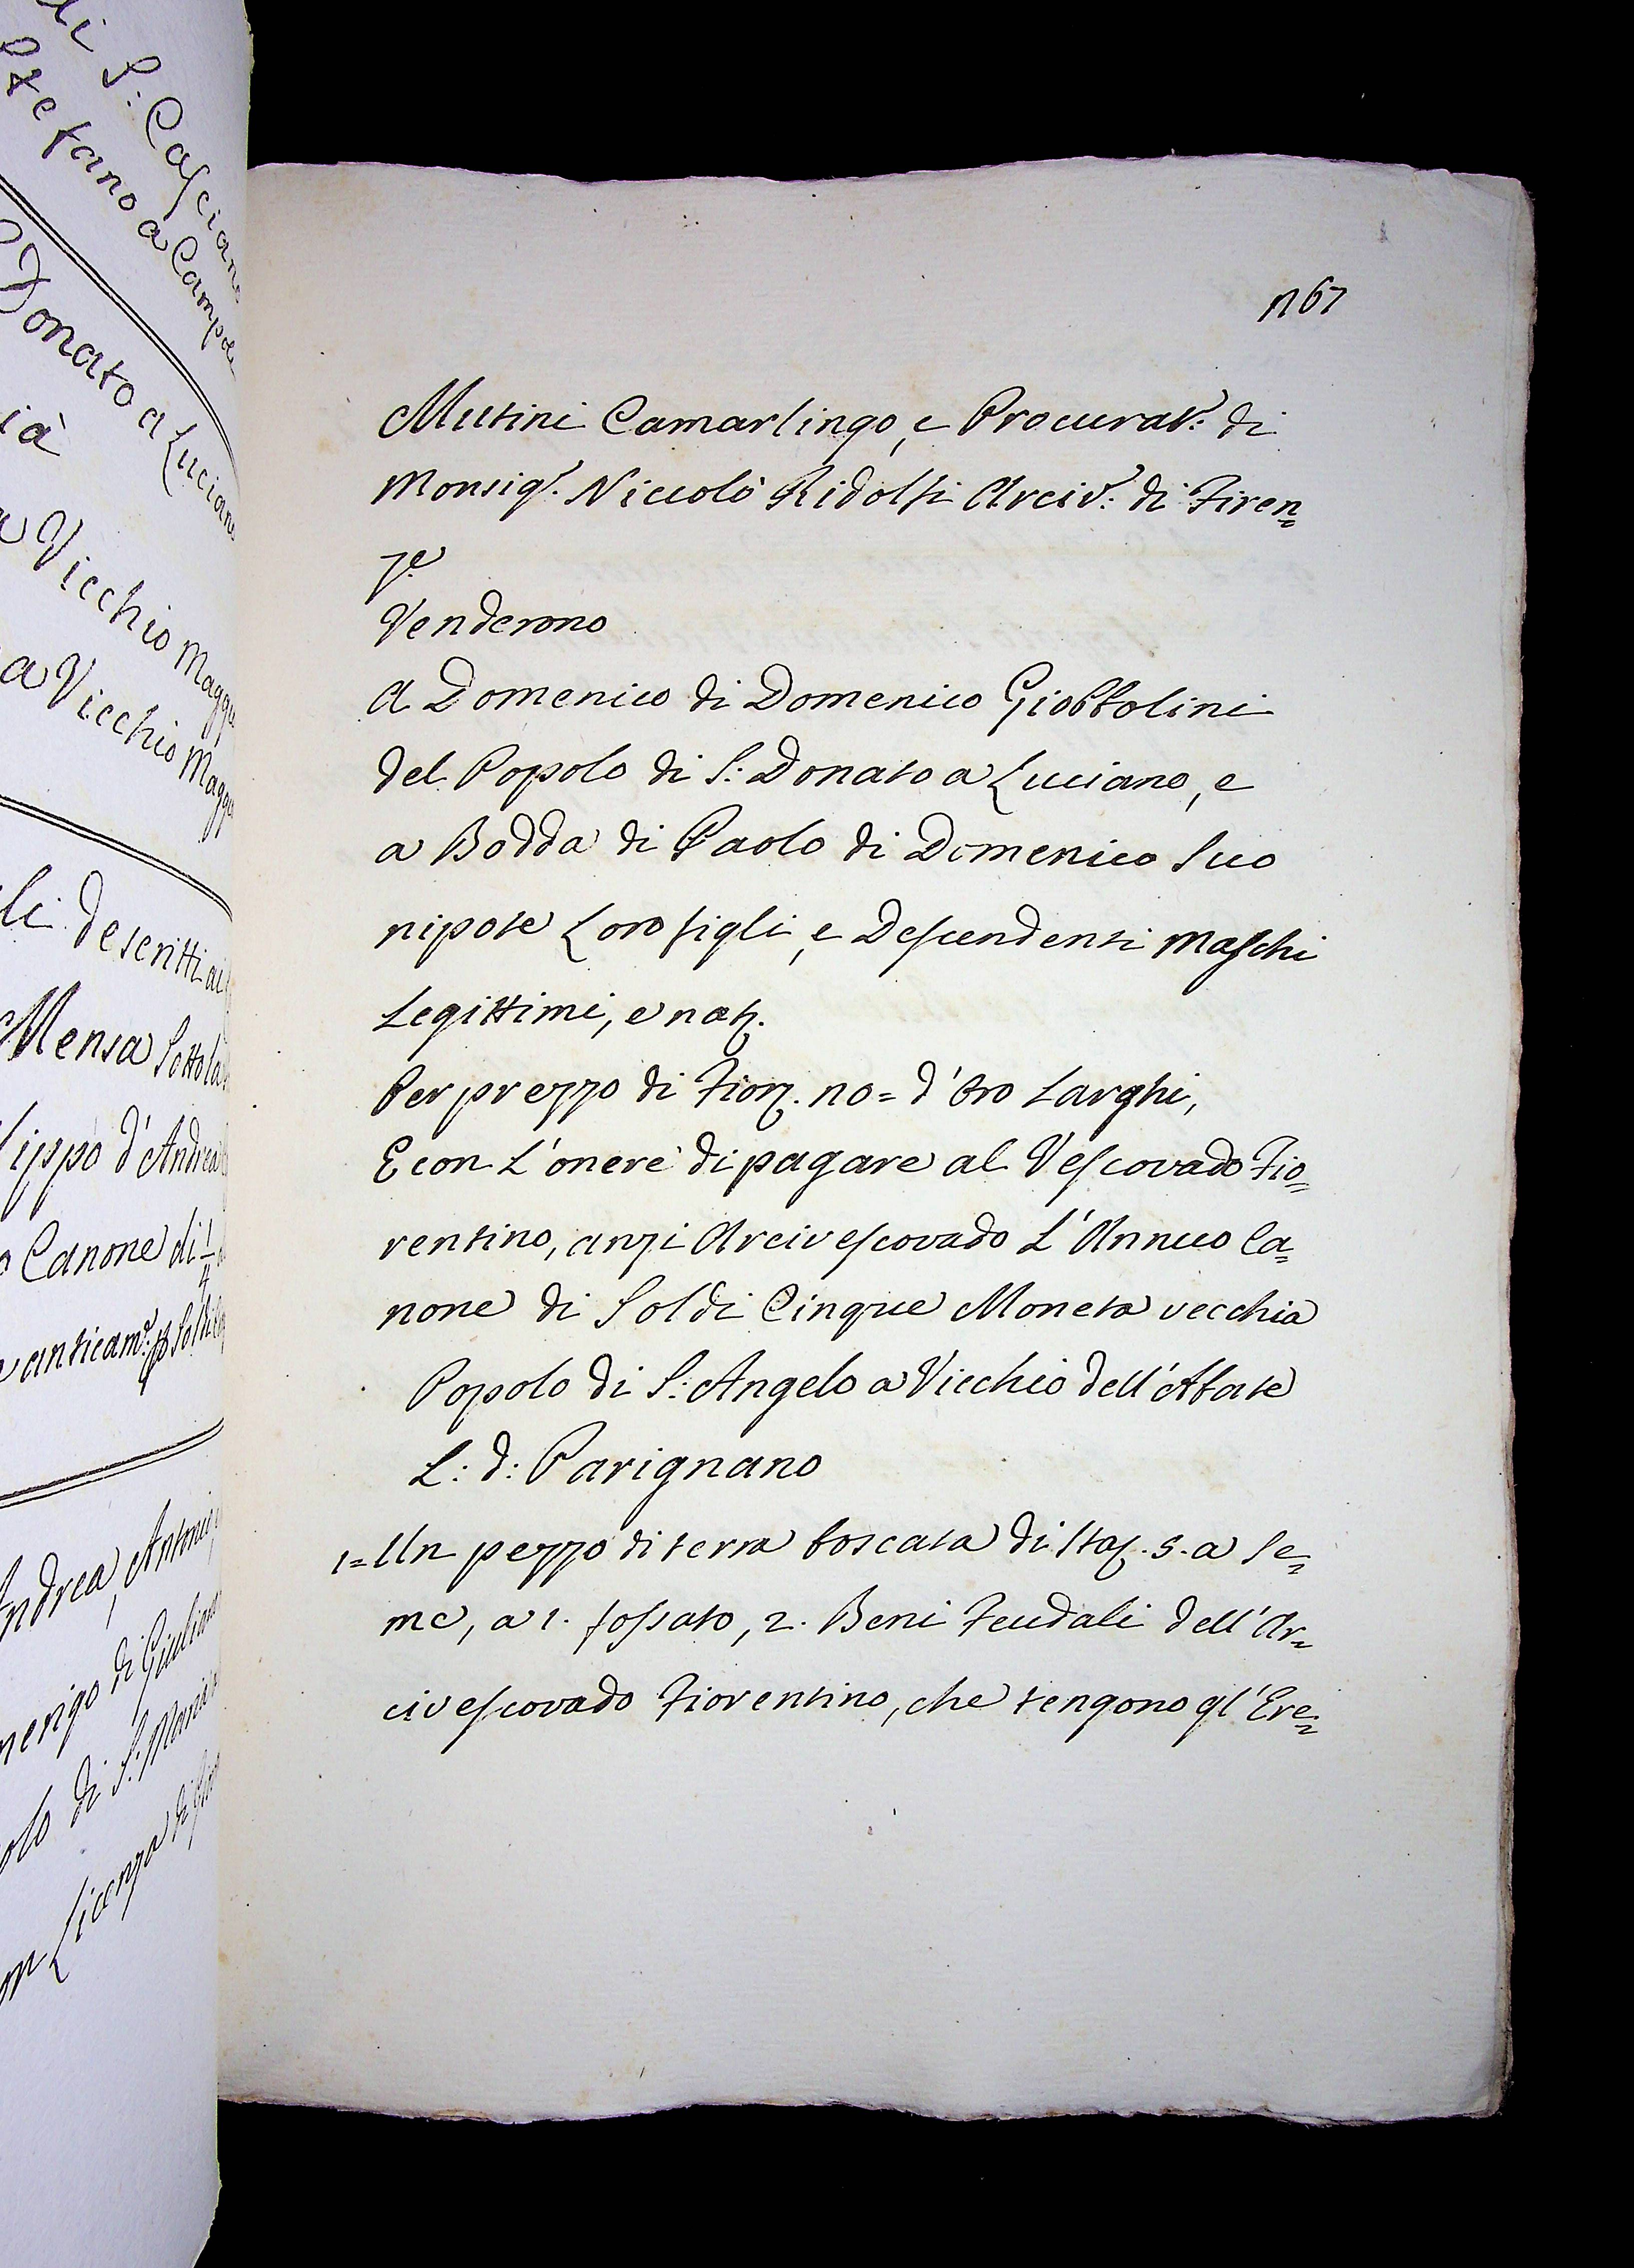 li S: Casciano
Stefano a Campoli
Donato a Luciano
ià
a Vicchio Magg
a Vicchio Magg
li descritti ai
Mensa Sotto la
lippo d'Andrea
o Canone di 1/4
anticam.e p Soldi
Andrea, Antonio,
merigo di Giuliano
olo di S: Maria
on Licenza di
1167
Mutini Camarlingo, e Procurat.r: di
Monsig.r. Niccolò Ridolfi Arciv.o: di Firen=
ze
Venderono
A Domenico di Domenico Giobbolini
del Popolo di S: Donato a Luciano, e
a Bodda di Paolo di Domenico Suo
nipote Loro figli, e Descendenti Maschi
Legittimi, e nat.
Per prezzo di Fior. 110= d'Oro Larghi,
E con L'onere di pagare al Vescovado Fio=
rentino, anzi Arcivescovado L'Annuo Ca=
none di Soldi Cinque Moneta vecchia
Popolo di S: Angelo a Vicchio dell'Abate
L: d: Parignano
1= Un pezzo di terra boscata di Sta. 5. a Se=
me, a 1. fossato, 2. Beni Feudali dell'Ar=
civescovado Fiorentino, che tengono gl'Ere=